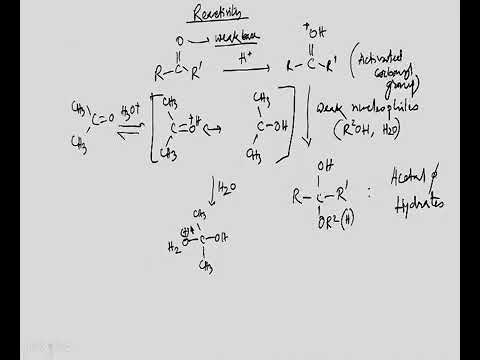 Reactivity
O → weak base
+OH
R-C-R' H+ → R-C-R' (Activated carbonyl group)
CH3 C=O CH3 H3O+ ⇌ [CH3 C=O+H CH3 ↔ CH3 C-OH CH3]
weak nucleophiles
(R²OH, H2O)
↓ H2O
OH
R-C-R' : Acetal &
OR²(H) Hydrates
CH3
H2O-C-OH
CH3